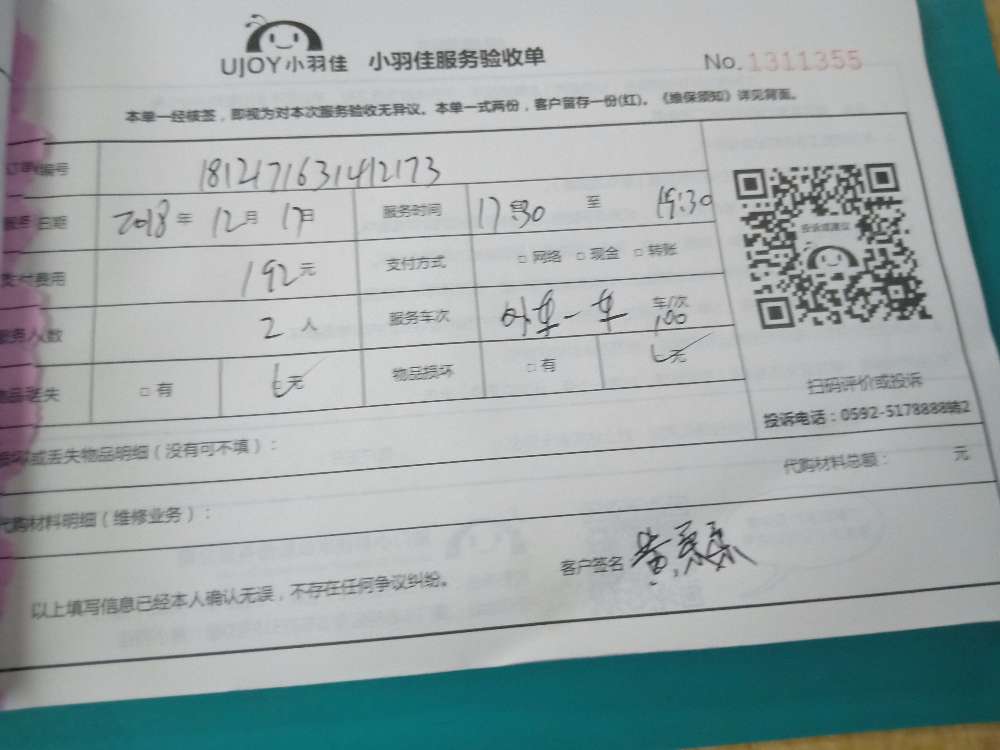 UJOY小羽佳 小羽佳服务验收单 No.1311355
本单一经核签，即视为对本次服务验收无异议。本单一式两份，客户留存一份(红)。《维保须知》详见背面。
订单编号 1812171631412173
服务日期 2018年 12月 17日 服务时间 17:30 至 19:30
支付费用 192元 支付方式 □网络 □现金 □转账
服务人数 2人 服务车次 车/次
物品丢失 □有 元 物品损坏 □有 元
投诉或建议
扫码评价或投诉
投诉电话：0592-5178888转2
损坏或丢失物品明细（没有可不填）：
代购材料明细（维修业务）： 代购材料总额： 元
以上填写信息已经本人确认无误，不存在任何争议纠纷。 客户签名 黄